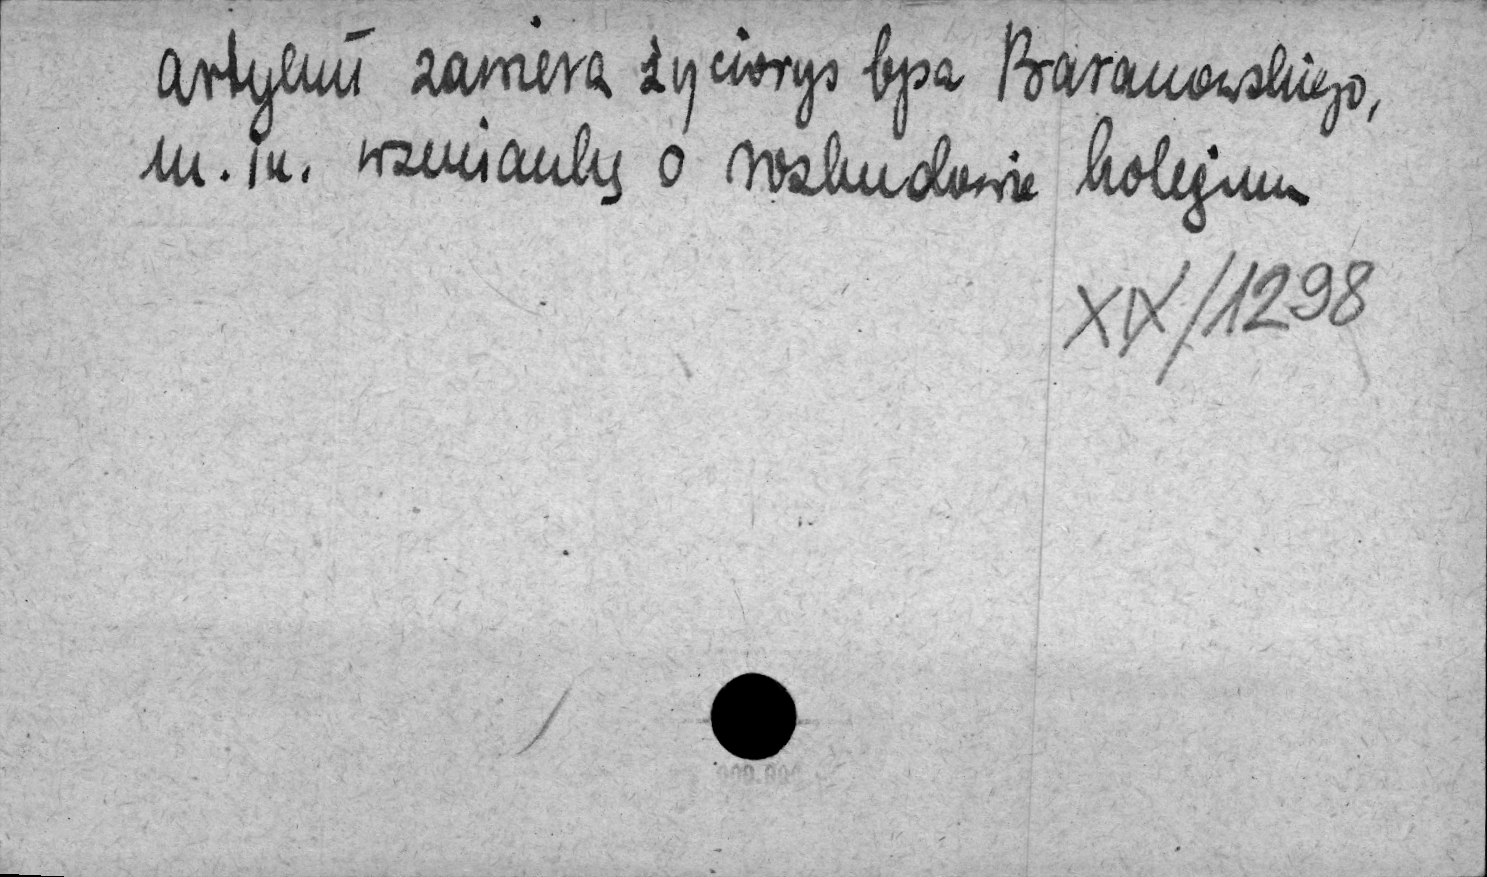 artykuł zawiera życiorys bpa Baranowskiego,
m.in. wzmiankę o rozbudowie kolegium
XIX/1298